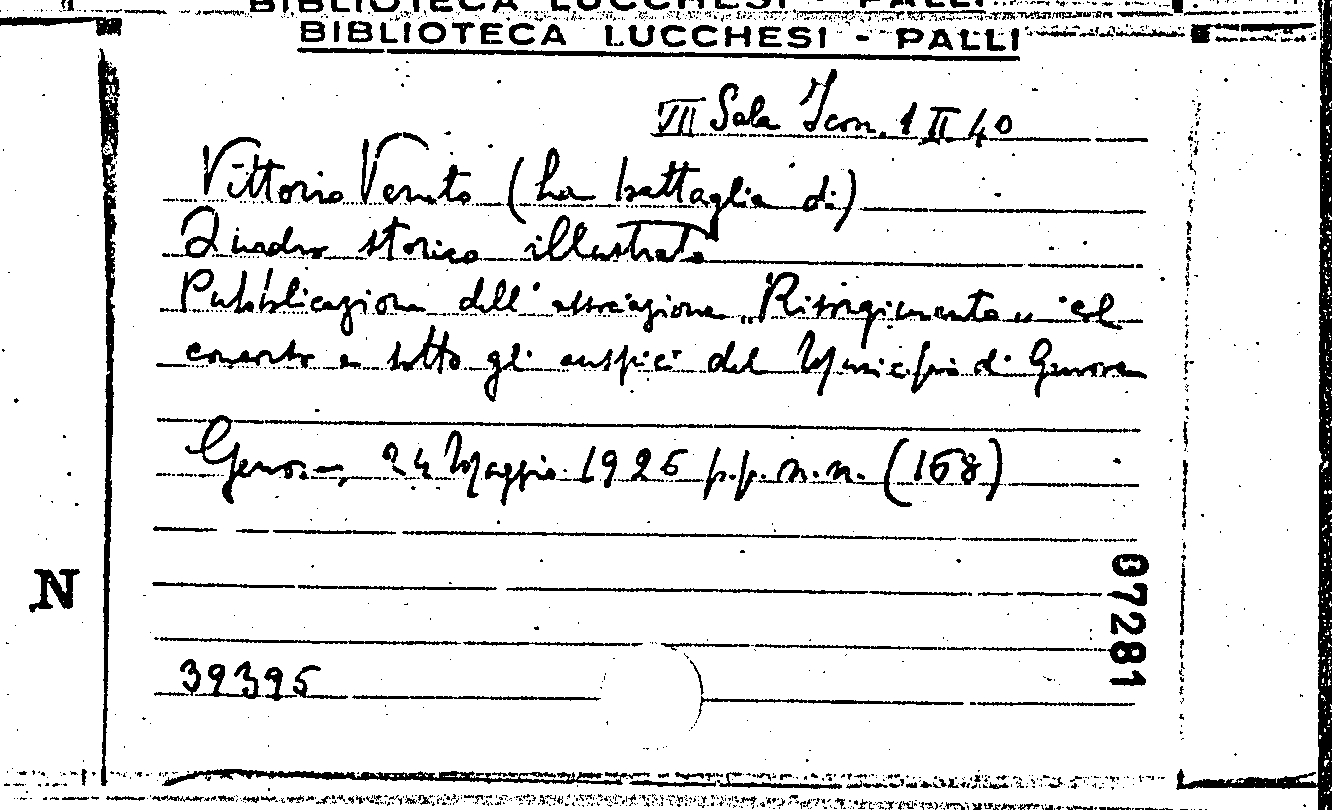 BIBLIOTECA LUCCHESI - PALLI
BIBLIOTECA LUCCHESI - PALLI
VII Sala Icon. 1 II 40
Vittorio Veneto (La battaglia di)
Quadro storico illustrato
Pubblicazione dell'associazione „Risorgimento„ col
concorso e sotto gli auspici del Municipio di Genova
Genova, 24 Maggio 1926 p.p. n.n. (168)
N
07281
39395